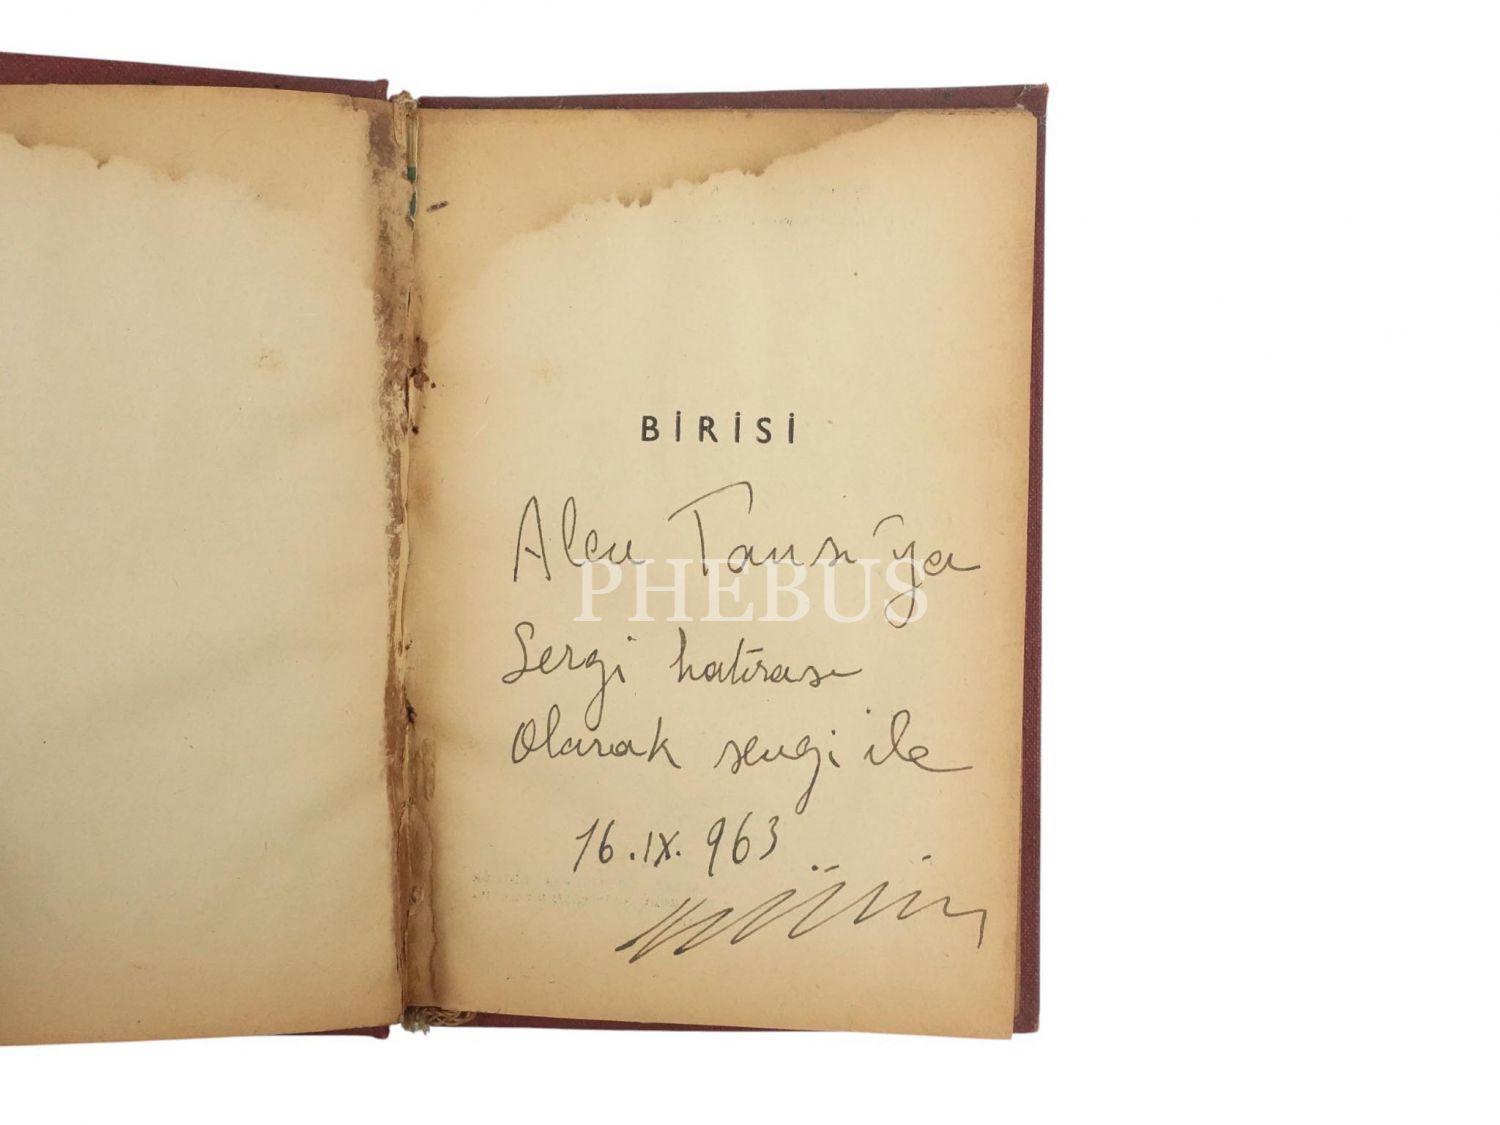 BİRİSİ
Alev Tansı'ya
PHEBUS
Sergi hatırası
olarak sevgi ile
16.IX.963